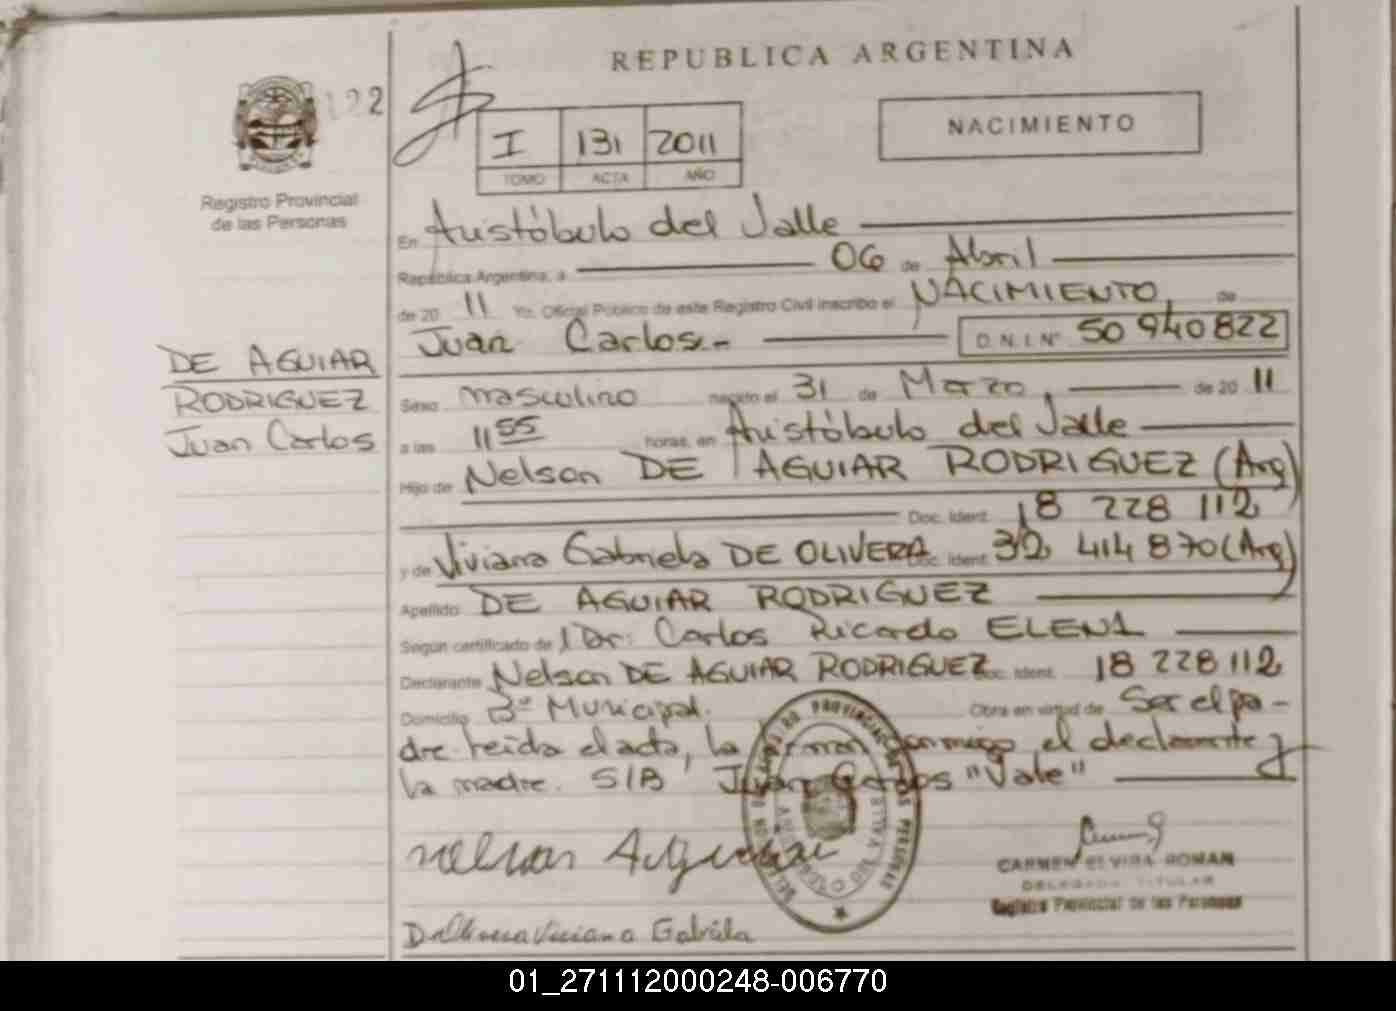 REPUBLICA ARGENTINA
122
I 131 2011
TOMO ACTA AÑO
NACIMIENTO
Registro Provincial
de las Personas
En Aristóbulo del Valle
República Argentina, a 06 de Abril
de 20 11 Yo, Oficial Público de este Registro Civil inscribo el NACIMIENTO, de
Juan Carlos.- D.N.I.N° 50 940 822
DE AGUIAR
RODRIGUEZ
Juan Carlos
Sexo masculino nacido el 31 de Marzo, de 20 11
a las 11 55 horas, en Aristóbulo del Valle
Hijo de Nelson DE AGUIAR RODRIGUEZ (Arg)
Doc. Ident. 18 228 112
y de Viviana Gabriela DE OLIVERA Doc. Ident. 32 414 870 (Arg)
Apellido DE AGUIAR RODRIGUEZ
Según certificado de Dr: Carlos Ricardo ELENI
Declarante Nelson DE AGUIAR RODRIGUEZ Doc. Ident. 18 228 112
Domicilio B° Municipal. Obra en virtud de Ser el pa-
dre leida el acta, la firman conmigo el declarante y
la madre. S/B Juan Carlos "Vale"
REGISTRO PROVINCIAL DE LAS PERSONAS
DEL VALLE
Nelson Aguiar
De Olivera Viviana Gabriela
CARMEN ELVIRA ROMAN
DELEGADA TITULAR
Registro Provincial de las Personas
01_271112000248-006770